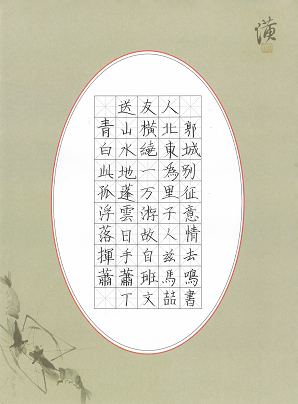 送友人
青山橫北郭
白水繞東城
此地一為别
孤蓬万里征
浮雲游子意
落日故人情
揮手自兹去
蕭蕭班馬鳴
丁文喆書